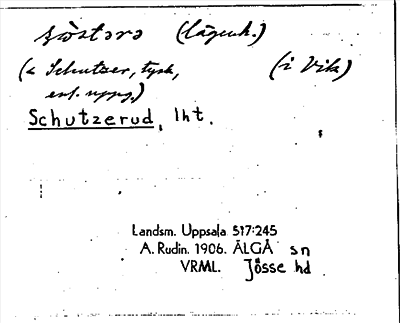 (lägenh.)
(< Schutzer, tysk, (i Vik)
enl. uppg.)
Schutzerud, lht.
Landsm. Uppsala 517:245
A. Rudin. 1906. ÄLGÅ sn
VRML. Jösse hd